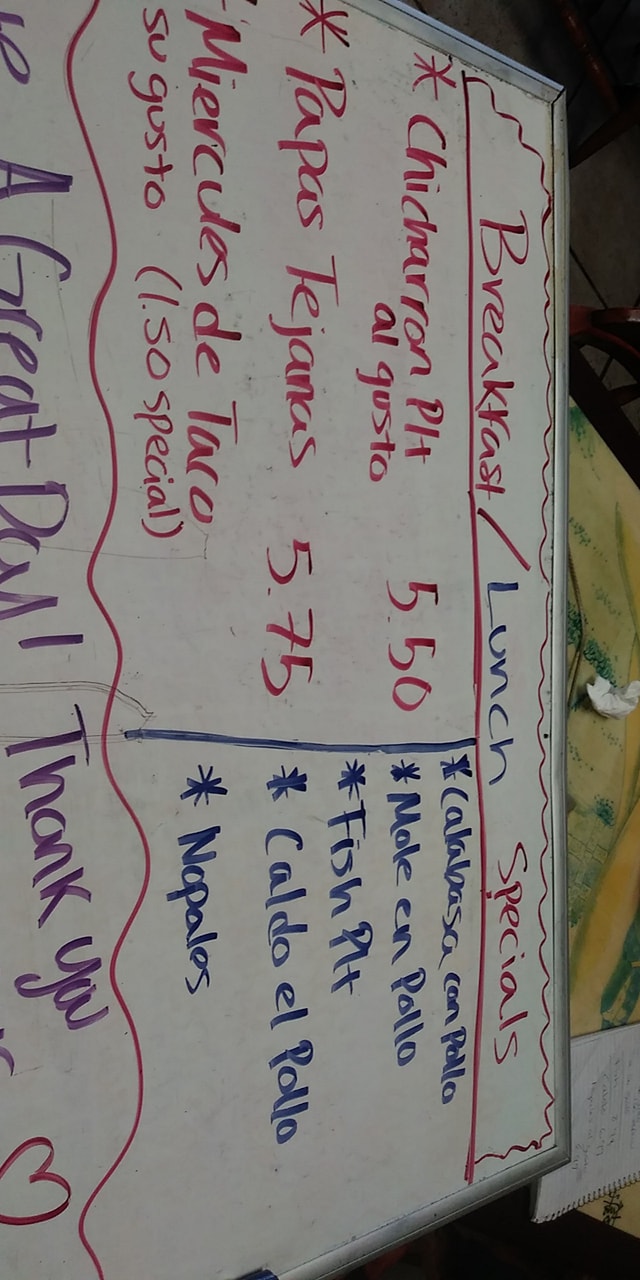 Breakfast/Lunch Specials
* Chicharron Plt 5.50
al gusto
* Papas Tejanas 5.75
- Miercules de Taco
su gusto (1.50 special)
* Calabasa con Pollo
* Mole en Pollo
* Fish Plt
* Caldo el Pollo
* Nopales
A Great Day! Thank you